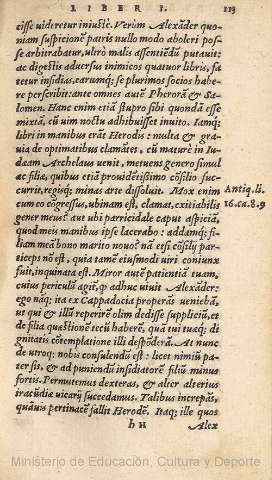 LIBER I. 113
cisse videretur iniustè. Verùm Alexãder quo-
niam suspicionẽ patris nullo modo aboleri pos-
se arbitrabatur, vltrò malis assentiẽdũ putauit:
ac digestis aduersus inimicos quatuor libris, fa
tetur insidias, earumq; se plurimos socios habe-
re perscribit: ante omnes autẽ Pherorã & Sa-
lomen. Hanc enim etiã stupro sibi quondã esse
mixtã, cũ vim noctu adhibuisset inuito. Iamq;
libri in manibus erãt Herodis: multa & gra-
uia de optimatibus clamãtes, cũ maturè in Iu-
dæam Archelaus venit, metuens genero simul
ac filiæ, quibus etiã prouidẽtißimo cõsilio suc-
currit, regisq; minas arte dissoluit. Mox enim
cum eo cõgressus, vbinam est, clamat, exitiabilis
gener meus? aut vbi parricidale caput aspiciã,
quod meis manibus ipse lacerabo: addamq; fi-
liam meã bono marito nouo? nã etsi cõsilij par-
ticeps nõ est, quia tamẽ eiusmodi viri coniunx
fuit, inquinata est. Miror autẽ patientiã tuam,
cuius periculũ agit, q adhuc viuit Alexãder:
ego nãq; ita ex Cappadocia properãs veniebã,
vt qui & illũ reperirẽ olim dedisse suppliciũ, et
de filia quæstionẽ tecũ haberẽ, quã tui tuæq; di
gnitatis cõtemplatione illi despõderã. At nunc
de vtroq; nobis consulendũ est: licet nimiũ pa-
ter sis, & ad puniendũ insidiatorẽ filiũ minus
fortis. Permutemus dexteras, & alter alterius
iracũdiæ vicarij succedamus. Talibus increpãs,
quãuis pertinacẽ fallit Herodẽ. Itaq; ille quos
Antiq.li.
16.ca.8.9
hH Alex
Ministerio de Educación, Cultura y Deporte